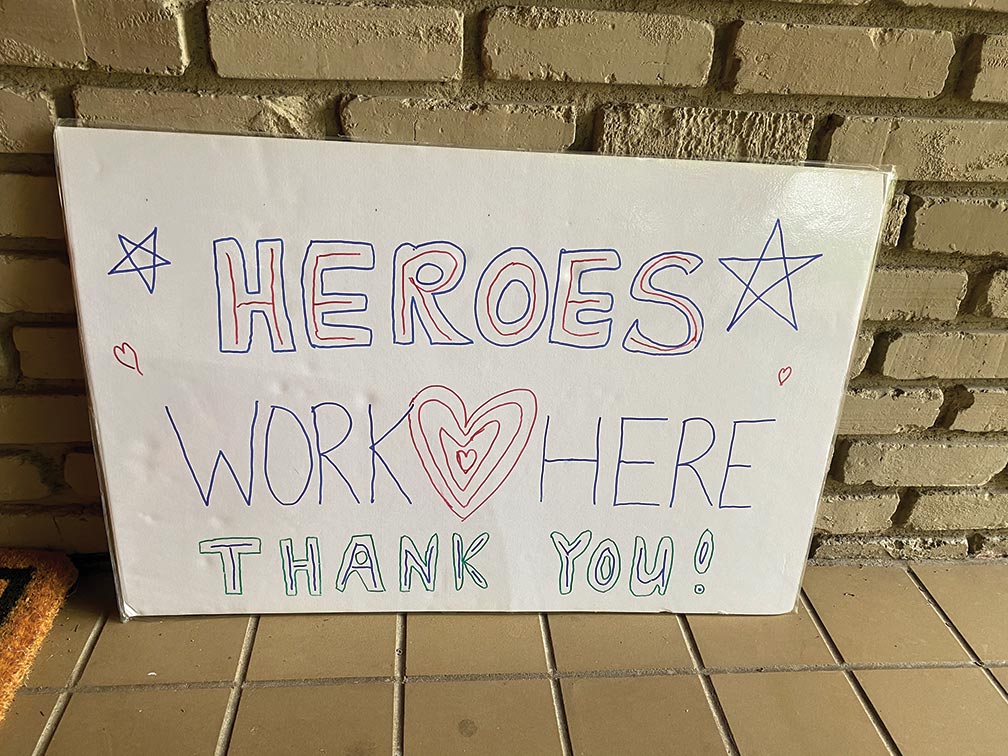 HEROES
WORK HERE
THANK YOU!